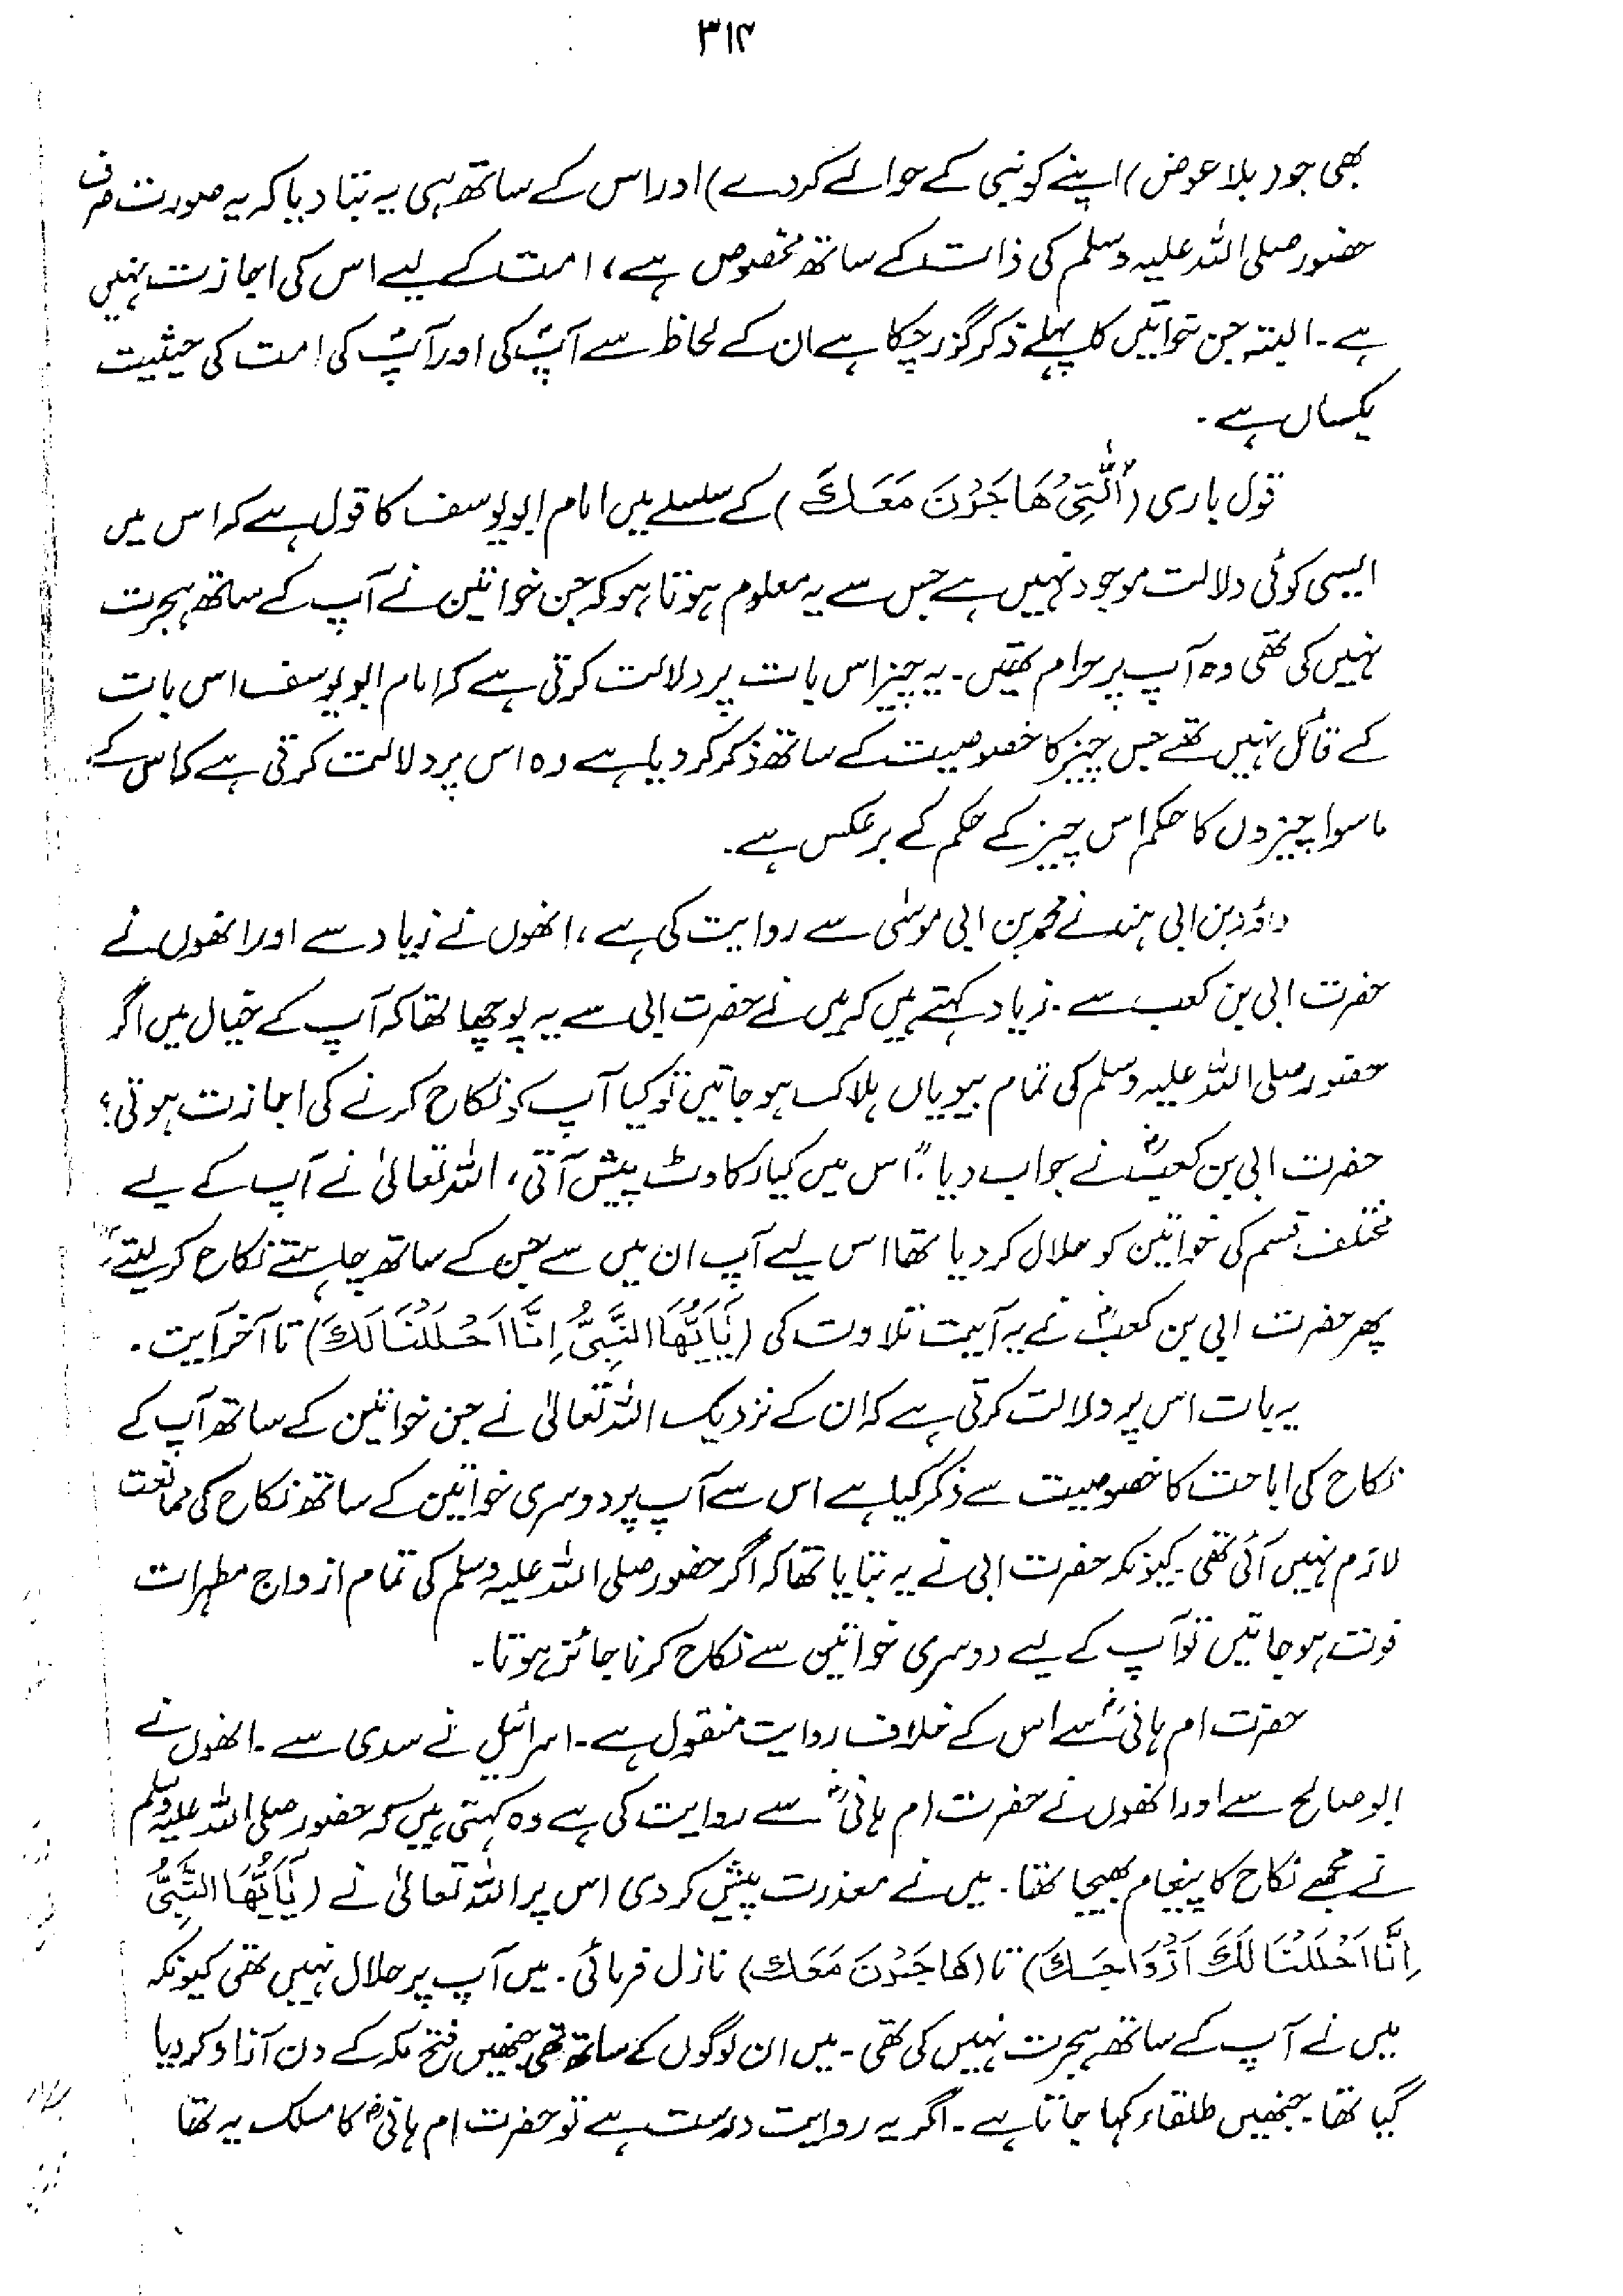 ۳۱۴
بھی جو (بلا عوض) اپنے کو نبی کے حوالے کردے) اور اس کے ساتھ ہی یہ بتا دیا کہ یہ صورت صرف
حضور صلی اللہ علیہ وسلم کی ذات کے ساتھ مخصوص ہے، امت کے لیے اس کی اجازت نہیں
ہے۔ البتہ جن خواتین کا پہلے ذکر گزر چکا ہے ان کے لحاظ سے آپؐ کی اور آپؐ کی امت کی حیثیت
یکساں ہے۔
قول باری (اَلّٰتِیْ ھَاجَرْنَ مَعَكَ) کے سلسلے میں امام ابو یوسف کا قول ہے کہ اس میں
ایسی کوئی دلالت موجود نہیں ہے جس سے یہ معلوم ہوتا ہو کہ جن خواتین نے آپ کے ساتھ ہجرت
نہیں کی تھی وہ آپ پر حرام تھیں۔ یہ چیز اس بات پر دلالت کرتی ہے کہ امام ابو یوسف اس بات
کے قائل نہیں تھے جس چیز کا خصوصیت کے ساتھ ذکر کر دیا ہے وہ اس پر دلالت کرتی ہے کہ اس کے
ماسوا چیزوں کا حکم اس چیز کے حکم کے برعکس ہے۔
داؤد بن ابی ہند نے محمد بن ابی موسٰی سے روایت کی ہے، انھوں نے زیاد سے اور انھوں نے
حضرت ابی بن کعب سے۔ زیاد کہتے ہیں کہ میں نے حضرت ابی سے یہ پوچھا تھا کہ آپ کے خیال میں اگر
حضور صلی اللہ علیہ وسلم کی تمام بیویاں ہلاک ہو جاتیں تو کیا آپ کو نکاح کرنے کی اجازت ہوتی؟
حضرت ابی بن کعبؓ نے جواب دیا: "اس میں کیا رکاوٹ پیش آتی، اللہ تعالیٰ نے آپ کے لیے
مختلف قسم کی خواتین کو حلال کر دیا تھا اس لیے آپ ان میں سے جن کے ساتھ چاہتے نکاح کر لیتے"
پھر حضرت ابی بن کعبؓ نے یہ آیت تلاوت کی (یٰٓاَیُّھَا النَّبِیُّ اِنَّا اَحْلَلْنَا لَكَ) تا آخر آیت۔
یہ بات اس پر دلالت کرتی ہے کہ ان کے نزدیک اللہ تعالیٰ نے جن خواتین کے ساتھ آپ کے
نکاح کی اباحت کا خصوصیت سے ذکر کیا ہے اس سے آپ پر دوسری خواتین کے ساتھ نکاح کی ممانعت
لازم نہیں آئی تھی۔ کیونکہ حضرت ابی نے یہ بتایا تھا کہ اگر حضور صلی اللہ علیہ وسلم کی تمام ازواج مطہرات
فوت ہو جاتیں تو آپ کے لیے دوسری خواتین سے نکاح کرنا جائز ہوتا۔
حضرت ام ہانیؓ سے اس کے خلاف روایت منقول ہے۔ اسرائیل نے سدی سے۔ انھوں نے
ابو صالح سے اور انھوں نے حضرت ام ہانیؓ سے روایت کی ہے وہ کہتی ہیں کہ حضور صلی اللہ علیہ وسلم
نے مجھے نکاح کا پیغام بھیجا تھا۔ میں نے معذرت پیش کر دی اس پر اللہ تعالیٰ نے (یٰٓاَیُّھَا النَّبِیُّ
اِنَّا اَحْلَلْنَا لَكَ اَزْوَاجَكَ) تا (ھَاجَرْنَ مَعَكَ) نازل فرمائی۔ میں آپ پر حلال نہیں تھی کیونکہ
میں نے آپ کے ساتھ ہجرت نہیں کی تھی۔ میں ان لوگوں کے ساتھ تھی جنھیں فتح مکہ کے دن آزاد کر دیا
گیا تھا۔ جنھیں طلقاء کہا جاتا ہے۔ اگر یہ روایت درست ہے تو حضرت ام ہانیؓ کا مسلک یہ تھا